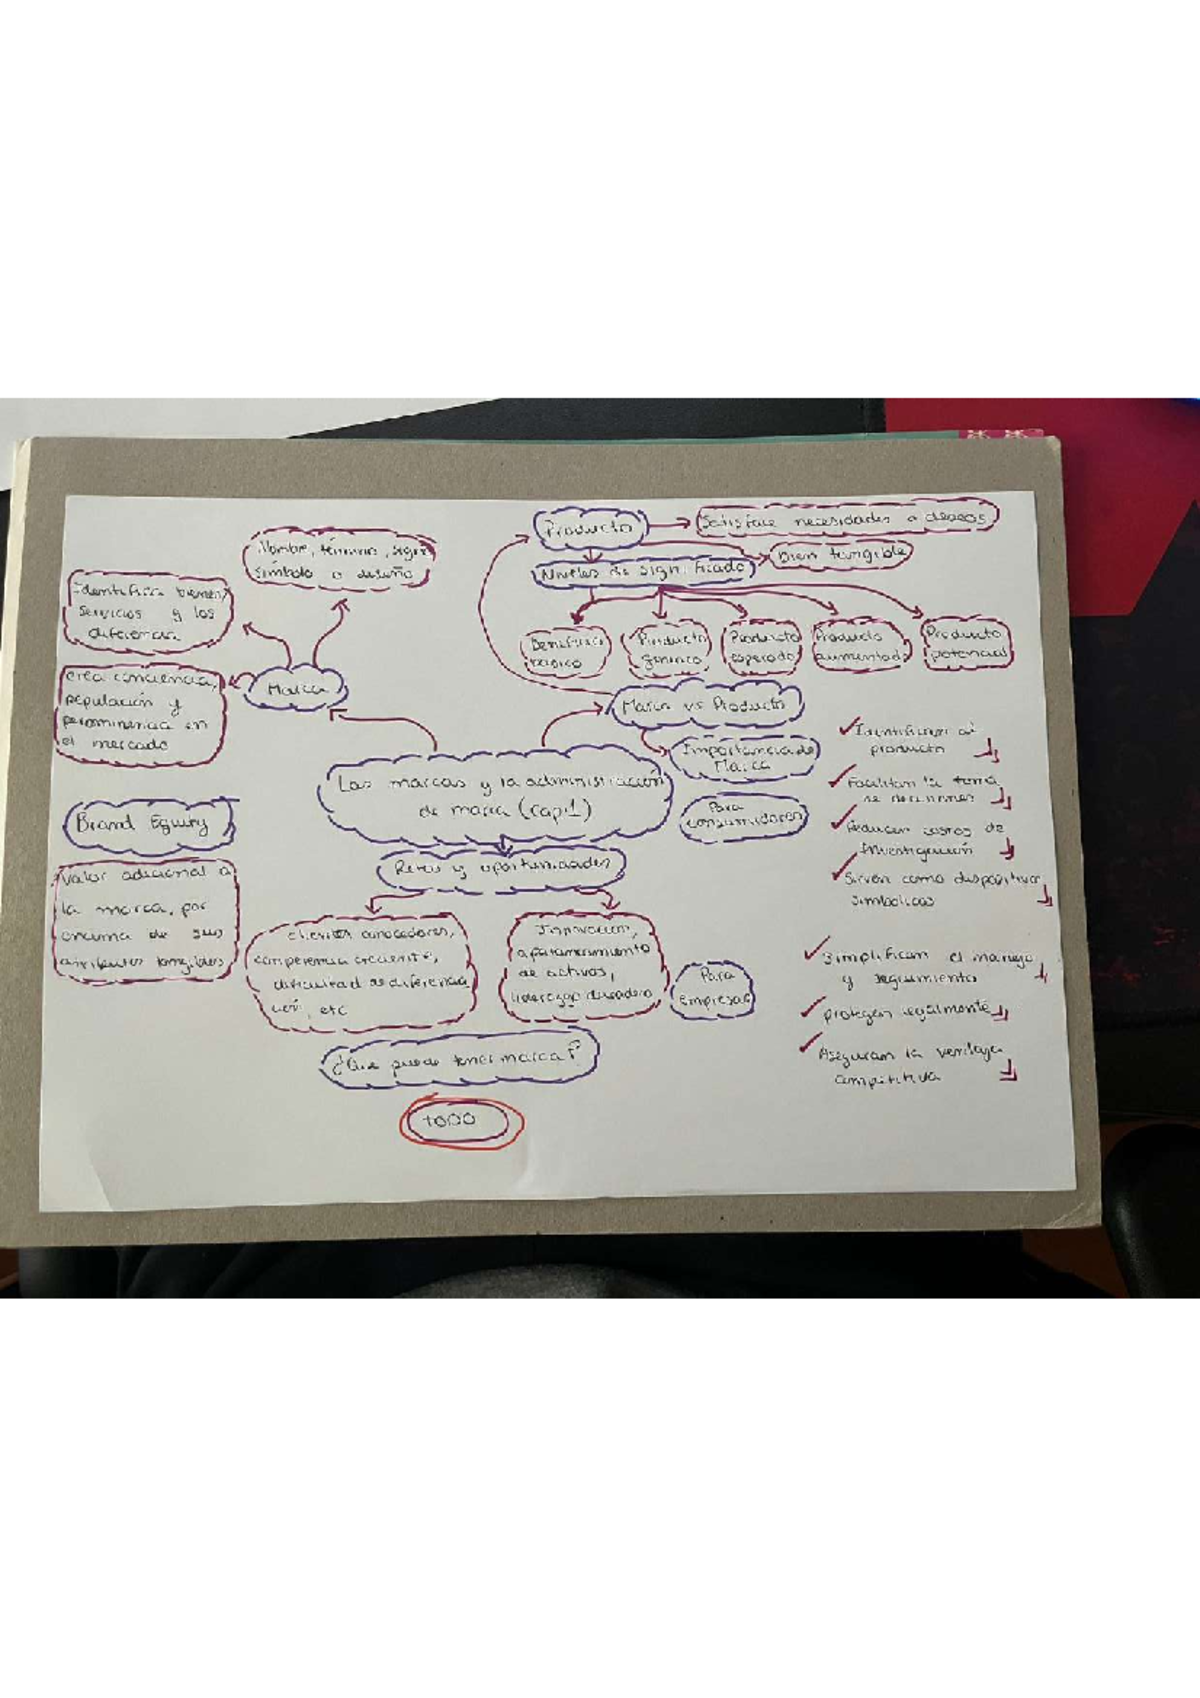 Producto
Satisface necesidades o deseos
Bien tangible
Niveles de significado
Beneficio
básico
Producto
genérico
Producto
esperado
Producto
aumentado
Producto
potencial
Marca vs Producto
Importancia de
Marca
Para
consumidores
Identifican al
producto
Facilitan la toma
de decisiones
Reducen costos de
Investigación
Sirven como dispositivos
simbólicos
Para
Empresas
Simplifican el manejo
y seguimiento
protegen legalmente
Aseguran la ventaja
competitiva
Nombre, término, signo
símbolo o diseño
Identifica bienes,
Servicios y los
diferencia
crea conciencia,
y
en
el mercado
Marca
Las marcas y la administración
de marca (cap.1)
Brand Equity
Valor adicional a
la marca, por
encima de sus
atributos tangibles
Retos y oportunidades
clientes conocedores,
competencia creciente,
dificultad de diferencia
ción, etc
Innovación,
de activos,
liderazgo duradero
¿Que puede tener marca?
TODO